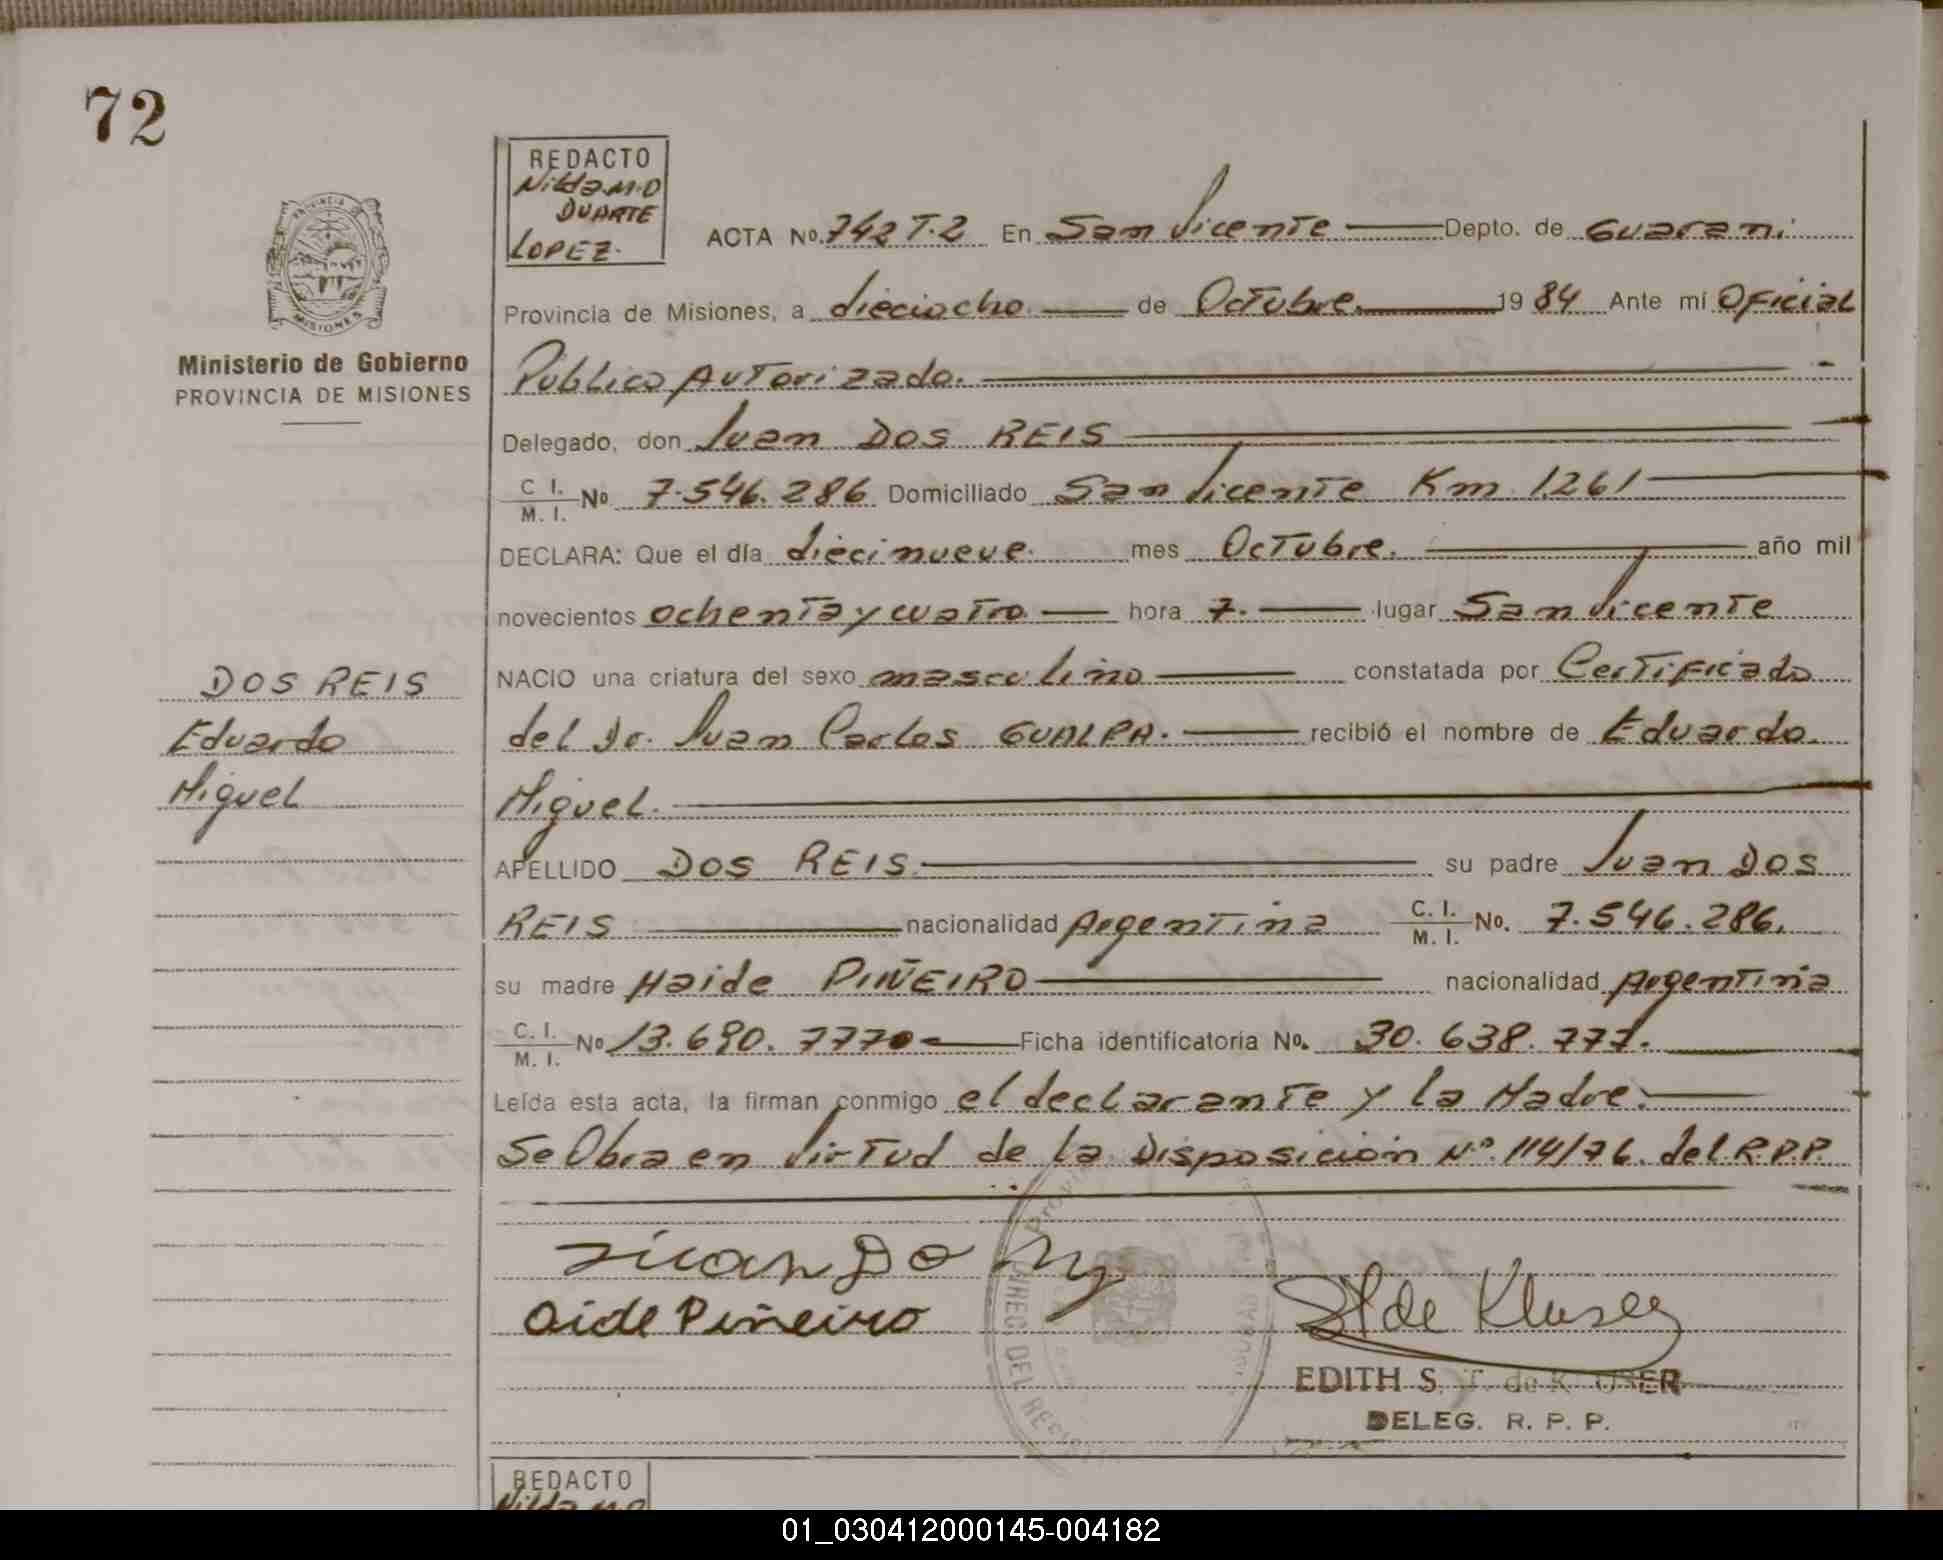 72
REDACTO
Nilda M.D
DUARTE
LOPEZ.
PROVINCIA DE
MISIONES
Ministerio de Gobierno
PROVINCIA DE MISIONES
ACTA No. 742 T.2 En San Vicente Depto. de Guarani
Provincia de Misiones, a dieciocho de Octubre. 19 84 Ante mí Oficial
Publico Autorizado.
Delegado, don Juan DOS REIS
C. I. / M. I. No 7.546.286 Domiciliado San Vicente Km 1261
DECLARA: Que el día diecinueve. mes Octubre. año mil
novecientos ochenta y cuatro hora 7. lugar San Vicente
NACIO una criatura del sexo masculino constatada por Certificado
del Dr. Juan Carlos GUALPA. recibió el nombre de Eduardo
Miguel.
APELLIDO DOS REIS su padre Juan DOS
REIS nacionalidad Argentina C. I. / M. I. No. 7.546.286.
su madre Haide PIÑEIRO nacionalidad Argentina
C. I. / M. I. No 13.690.777 Ficha identificatoria No. 30.638.777.
Leída esta acta, la firman conmigo el declarante y la Madre.
Se Obra en Virtud de la Disposición Nº. 114/76. del R.P.P.
DOS REIS
Eduardo
Miguel
Oide Piñeiro
S T de Kluser
EDITH S. T. de K USER
DELEG. R. P. P.
DIREC. DEL REGIST
REDACTO
Nilda M.D
01_030412000145-004182